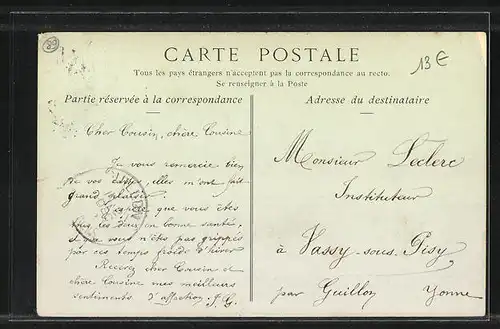 89
13 €
CARTE POSTALE
Tous les pays étrangers n'acceptent pas la correspondance au recto.
Se renseigner à la Poste
Partie réservée à la correspondance
Cher Cousin, chère Cousine
Je vous remercie bien
de vos cartes, elles m'ont fait
grand plaisir.
J'espère que vous êtes
tous les deux en bonne santé,
et que vous n'êtes pas grippés
par ces temps froids d'hiver
Recevez cher Cousin et
chère Cousine mes meilleurs
sentiments d'affection. J. G.
Adresse du destinataire
Monsieur Leclerc
Instituteur
à Vassy-sous-Pisy
par Guillon Yonne